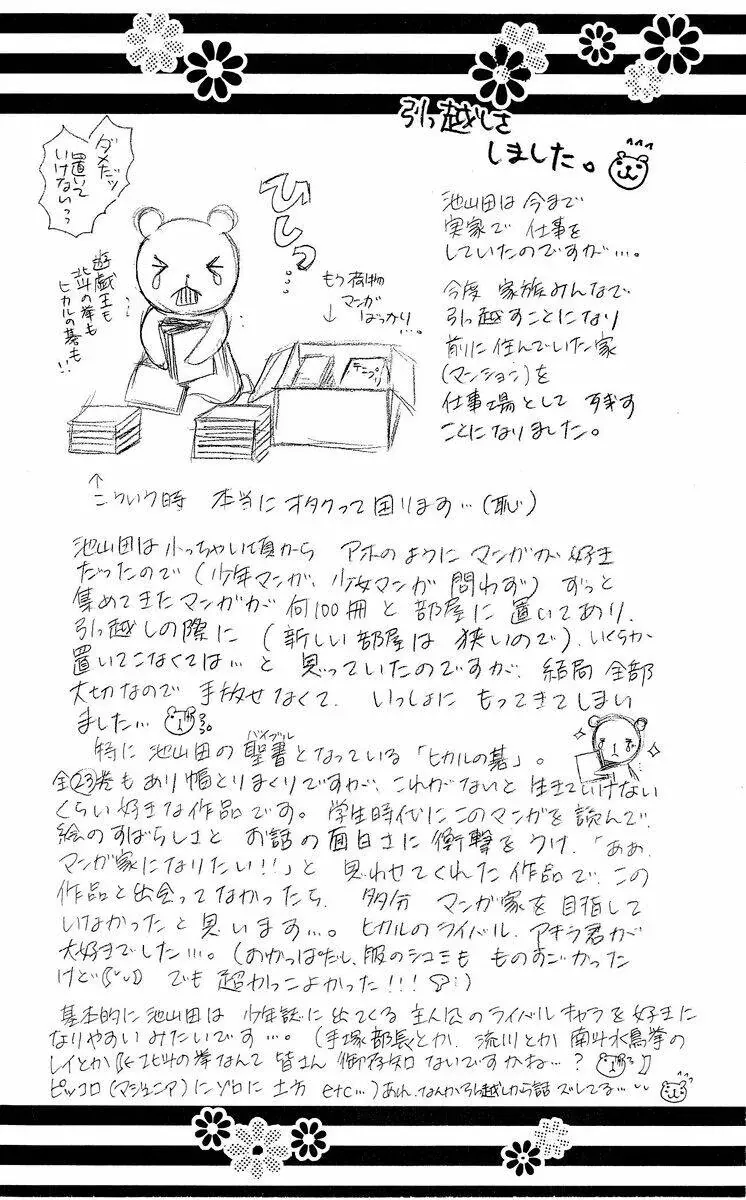 引っ越しを
しました。
ダメだッ
置いて
いけないっっ
ひしっ…
遊戯王も
北斗の拳も
ヒカルの碁も!!
もう荷物
マンガ
ばっかり…。
テニプリ
池山田は今まで
実家で仕事を
していたのですが…。
今度 家族みんなで
引っ越すことになり
前に住んでいた家
(マンション)を
仕事場として すごす
ことになりました。
↑
こういう時 本当にオタクって困ります…(恥)
池山田は小っちゃい頃から アホのようにマンガが好き
だったので(少年マンガ、少女マンガ 問わず)ずっと
集めてきたマンガが何100冊と部屋に置いてあり、
引っ越しの際に(新しい部屋は狭いので)、いくらか
置いてこなくては…と思っていたのですが、結局全部
大切なので手放せなくて、いっしょにもってきてしまい
ました…
特に池山田の聖書(バイブル)となっている「ヒカルの碁」。
全23巻もあり幅とりまくりですが、これがないと生きていけない
くらい好きな作品です。学生時代にこのマンガを読んで、
絵のすばらしさとお話の面白さに衝撃をうけ、「ああ、
マンガ家になりたい!!」と思わせてくれた作品で、この
作品と出会ってなかったら、多分 マンガ家を目指して
いなかったと思います…。ヒカルのライバル、アキラ君が
大好きでした…。(おかっぱだし、服のシュミも ものすごかった
けど でも超かっこよかった!!!)
基本的に池山田は 少年誌に出てくる主人公のライバルキャラを好きに
なりやすいみたいです…。(手塚部長とか、流川とか 南斗水鳥拳の
レイとか 北斗の拳なんて皆さん御存知ないですかね…?
ピッコロ(マジュニア)にゾロに土方 etc…)あれ、なんか引っ越しから話ズレてる…